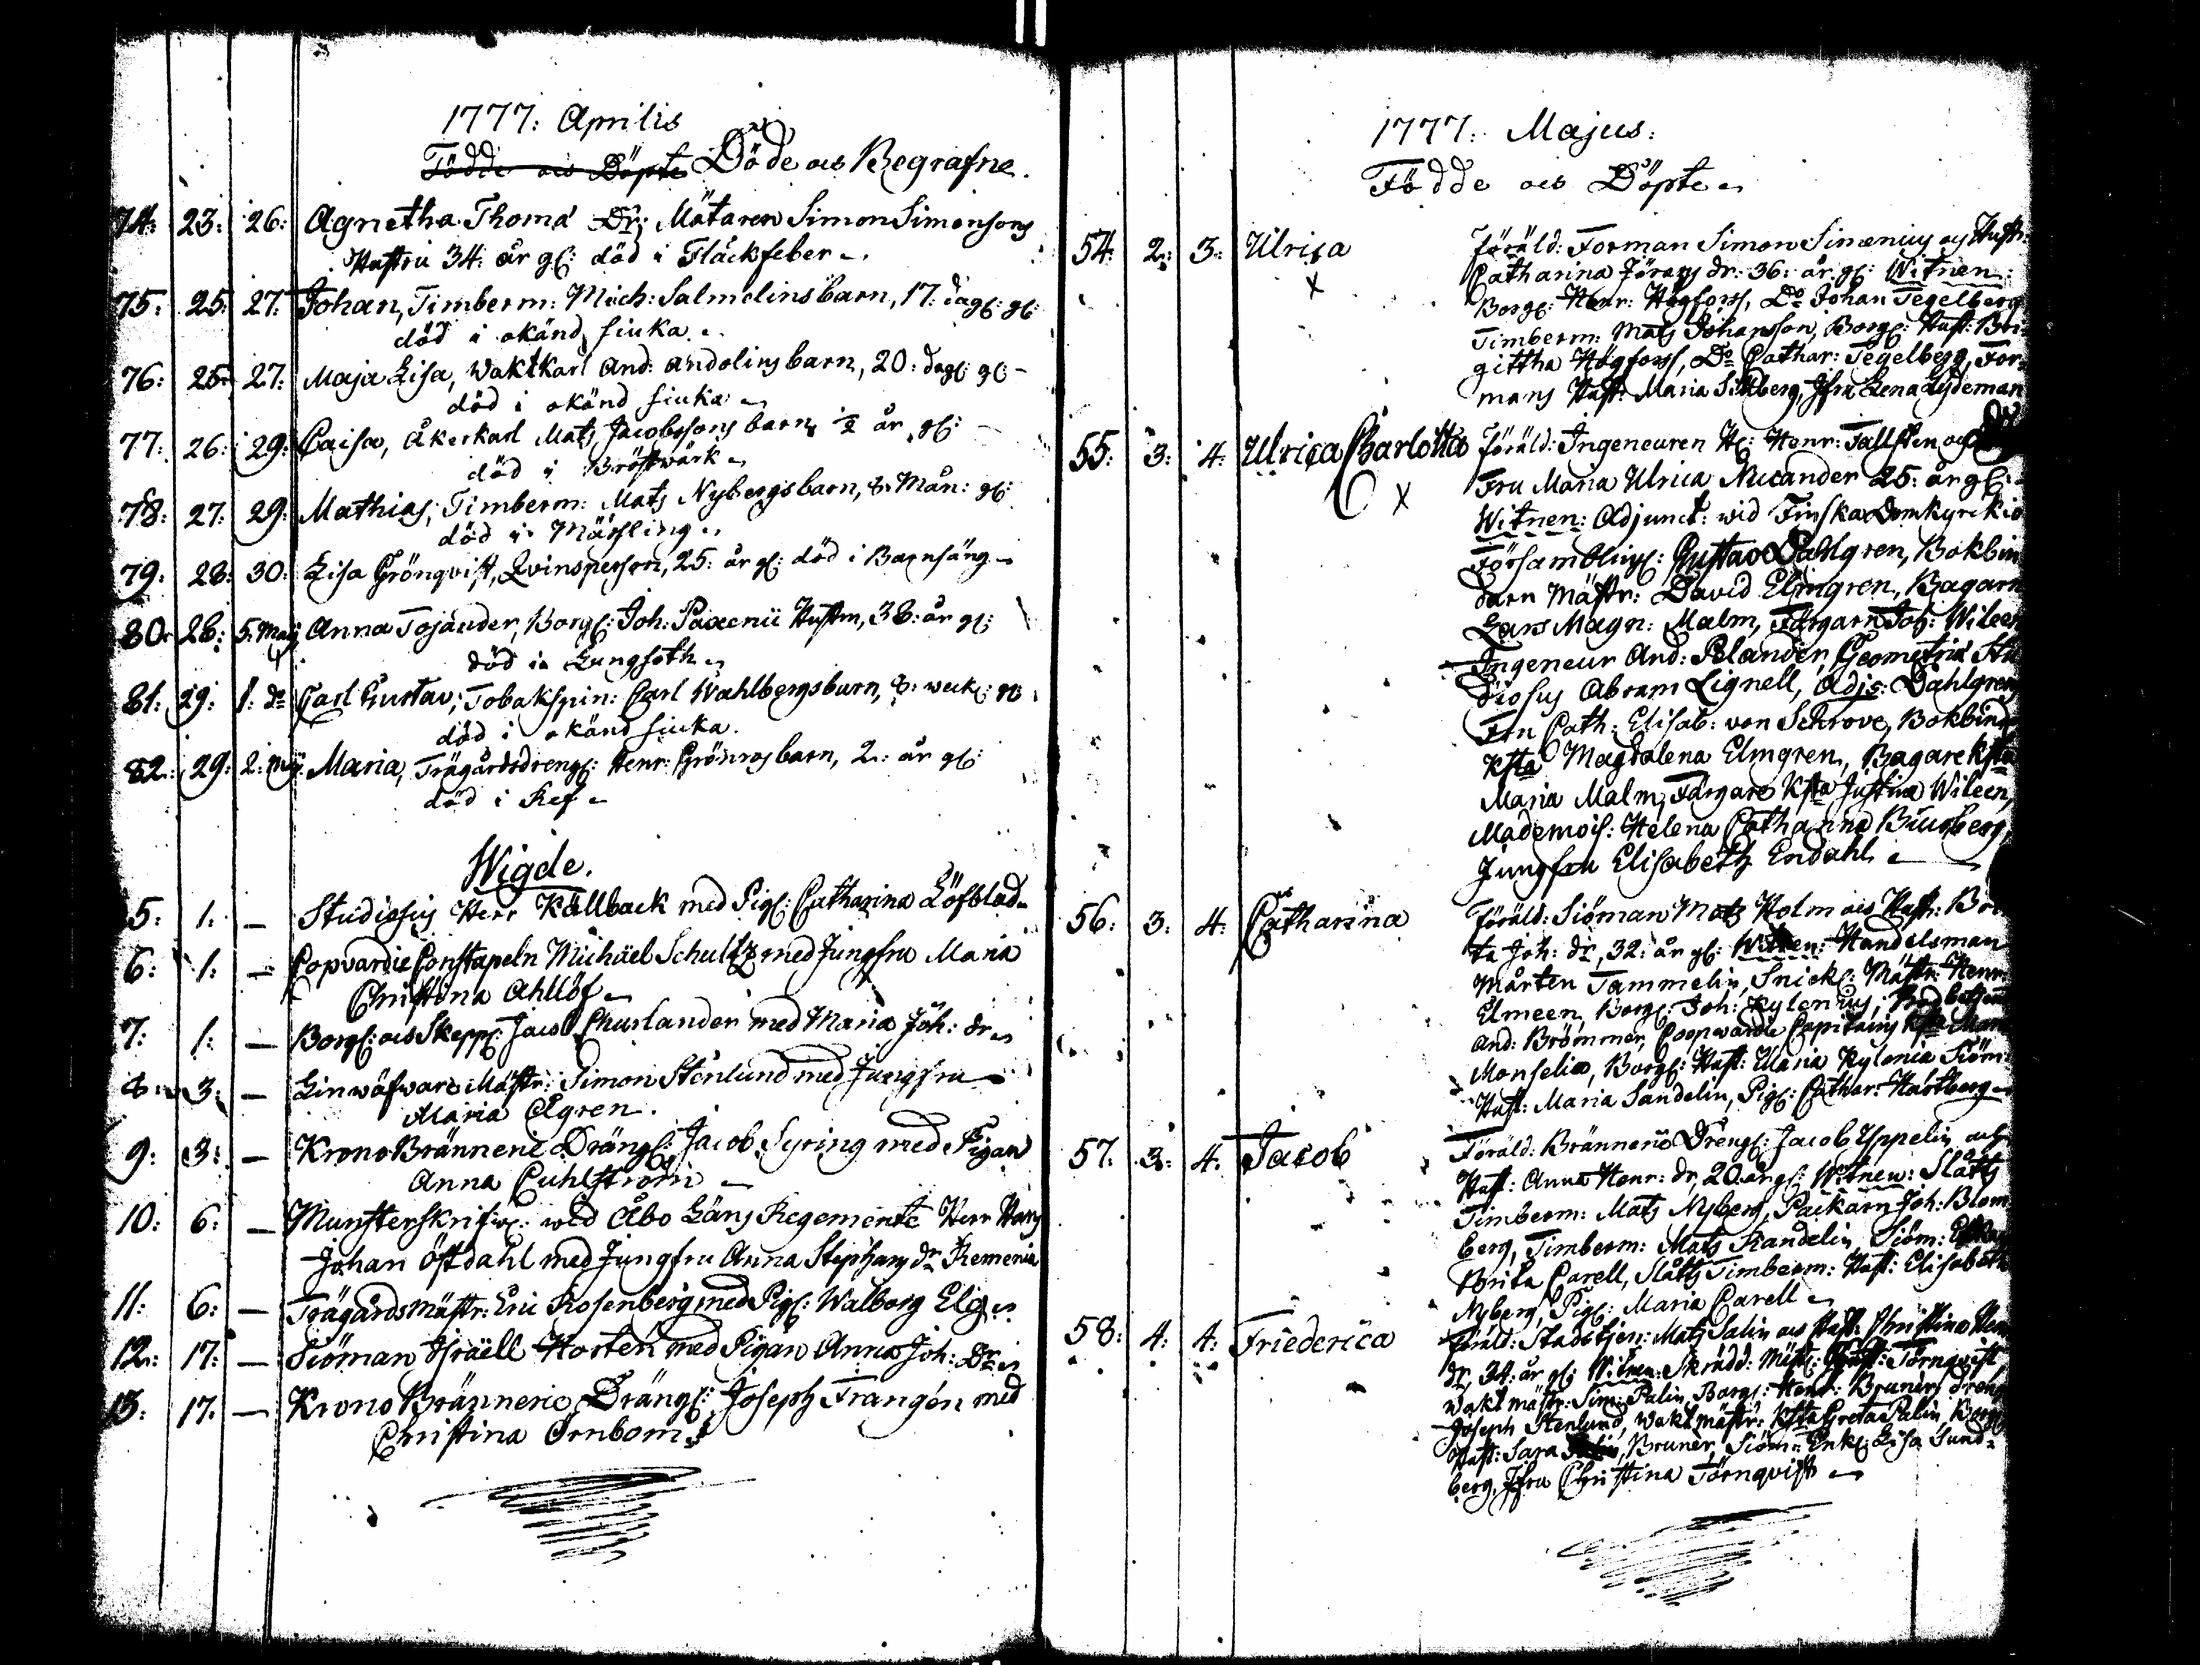 1777: Aprilis
Födde och Döpte Döde och Begrafne.
74: 23: 26: Agnetha Thomæ Dr: Mätaren Simon Simonsons
Hustru 34: år gl: död i Fläckfeber
75: 25: 27: Johan, Timberm: Mich: Salmelins barn, 17: dag: gl:
död i okänd siuka
76: 25: 27: Maja Lisa, Wacktkarl And: Andolins barn, 20: dag: gl:
död i okänd siuka
77: 26: 29: Caisa, Åkerkarl Mats Jacobssons barn, ½ år gl:
död i Bröstwärk
78: 27: 29: Mathias, Timberm: Mats Nybergs barn, 8: Mån: gl:
död i Mässling
79: 28: 30: Lisa Grönqvist, Qvinsperson, 25: år gl: död i Barnsäng
80: 28: 5: Maij Anna Tojander, Borg: Joh: Paxenii Hustru, 38: år gl:
död i Lungsoth
81: 29: 1: do Carl Gustav, Tobakspin: Carl Wahlbergs barn, 8: weck: gl:
död i okänd siuka.
82: 29: 2: Maij Maria, Trägårdsdreng: Henr: Grönros barn, 2: år gl:
död i Ref
Wigde.
5: 1: — Studiosus Herr Källback med Pig: Catharina Löfblad
6: 1: — Copvardie Constapeln Michäel Schultz med Jungfru Maria
Christina Ahllöf
7: 1: — Borg: och Skepp: Jacob Churlander med Maria Joh: dr
8: 3: — Linwäfware Mästr: Simon Stenlund med Jungfru
Maria Ågren.
9: 3: — Krono Bränneri Dräng: Jacob Syring med Pigan
Anna Cuhlström
10: 6: — Munsterskrifw: wid Åbo Läns Regemente Herr Hans
Johan Östdahl med Jungfru Anna Stephans dr Remenia
11: 6: — Trägårdsmästr: Eric Rosenberg med Pig: Walborg Elg
12: 17: — Siöman Israell Hortén med Pigan Anna Joh: Dr
13: 17: — Krono Bränneri Dräng: Joseph Frangén med
Christina Örnbom
1777: Majus:
Födde och Döpte
54: 2: 3: Ulrica Föräld: Forman Simon Simenius och Hustr:
x Catharina Jörans dr: 36: år gl: Witnen:
Borg: Henr: Högforss, Do Johan Tegelberg
Timberm: Mats Johansson, Borg: Hust: Bri-
gittha Högforss, Do Cathar: Tegelberg, For-
mans Hust: Maria Sittberg, Jfru Lena Lydeman
55: 3: 4: Ulrica Charlotta Föräld: Ingeneuren H: Henr: Tallsten och
x Fru Maria Ulrica Nucander 25: år gl:
Witnen: Adjunct: wid Finska Domkyrkio
Försambling: Gustav Dahlgren, Bokbin
darn Mästr: David Elmgren, Bagarn
Lars Magn: Malm, Färgarn Joh: Wileen
Ingeneur And: Polander, Geometriæ Stu
diosus Abram Lignell, Adj: Dahlgren
Fru Cath: Elisab: von Schrove, Bokbind
Ksta Magdalena Elmgren, Bagare Ksta
Maria Malm, Färgare Ksta Justina Wileen,
Mademois: Helena Catharina Biurberg,
Jungfru Elisabeth Endahl
56: 3: 4: Catharina Föräld: Siöman Mats Holm och Hustr: Bri
ta Joh: dr, 32: år gl: Witnen: Handelsman
Mårten Tammelin, Snick: Mästr: Henr:
Elmeen, Borg: Joh: Kylenius,
And: Brömmer, Coopwardie Capitains Ksta
Monselia, Borg: Hust: Maria Kylenia Siöm:
Hust: Maria Sandelin, Pig: Cathar: Hartberg
57: 3: 4: Jacob Föräld: Bränneri Dreng: Jacob Uppelin och
Hust: Anna Henr: dr, 20 år gl: Witnen: Slåtts
Timberm: Mats Nyberg, Packarn Joh: Blom
berg, Timberm: Mats Randelin, Siöm:
Brita Carell, Slåtts Timberm: Hust: Elisabeth
Nyberg, Pig: Maria Carell
58: 4: 4: Friederica Föräld: Stadstjen: Mats Salin och Hust: Christina Hen
dr, 34: år gl: Witnen: Skrädd: Mäst: Gust: Törnqvist
Waktmästr: Sim: Palin, Borg: Henr: Bruner, Dreng
Joseph Stenlund, Waktmästr: Ksta Greta Palin, Borg:
Hust: Sara Bruner, Siöm: Enk: Lisa Sund-
berg, Jfru Christina Törnqvist